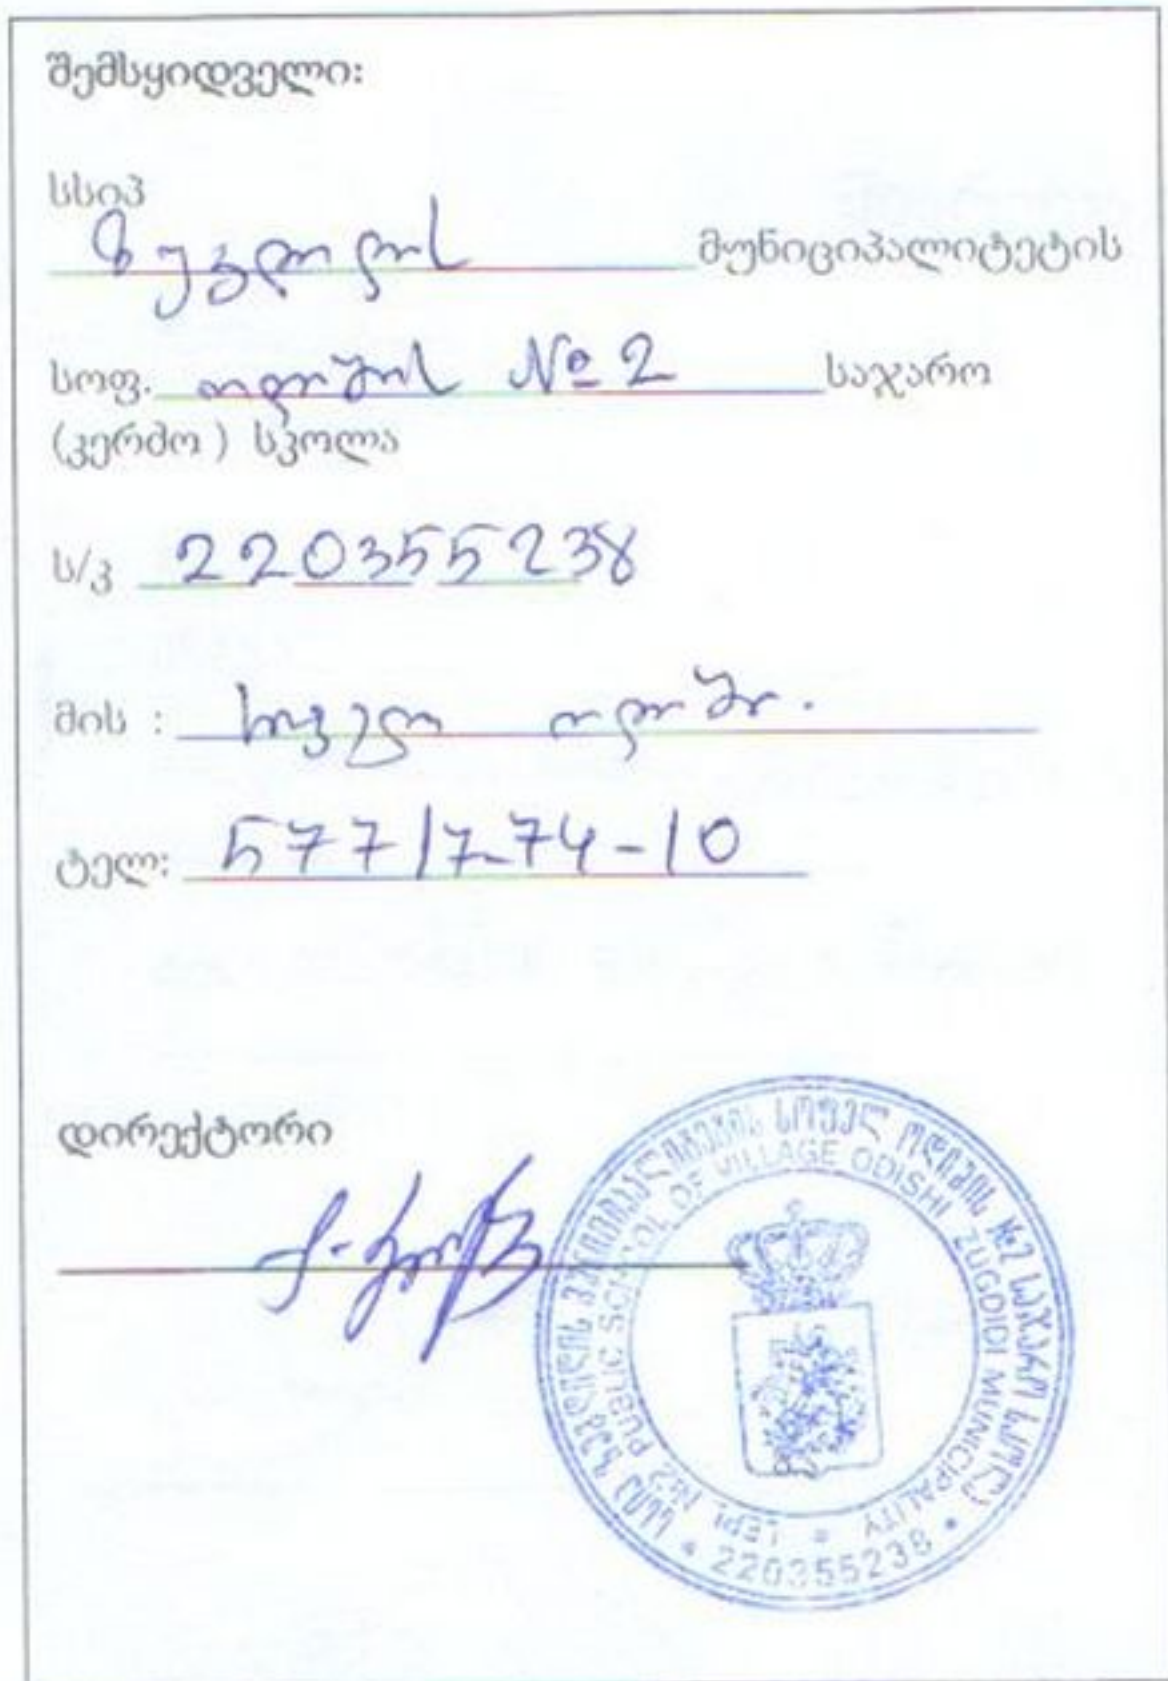 შემსყიდველი:
სსიპ
ზუგდიდის მუნიციპალიტეტის
სოფ. ოდიშის №2 საჯარო
(კერძო ) სკოლა
ს/კ 220355238
მის : სოფელი ოდიში.
ტელ: 577 17-74-10
დირექტორი
სსიპ ზუგდიდის მუნიციპალიტეტის სოფელ ოდიშის №2 საჯარო სკოლა
LEPL №2 PUBLIC SCHOOL OF VILLAGE ODISHI ZUGDIDI MUNICIPALITY
220355238